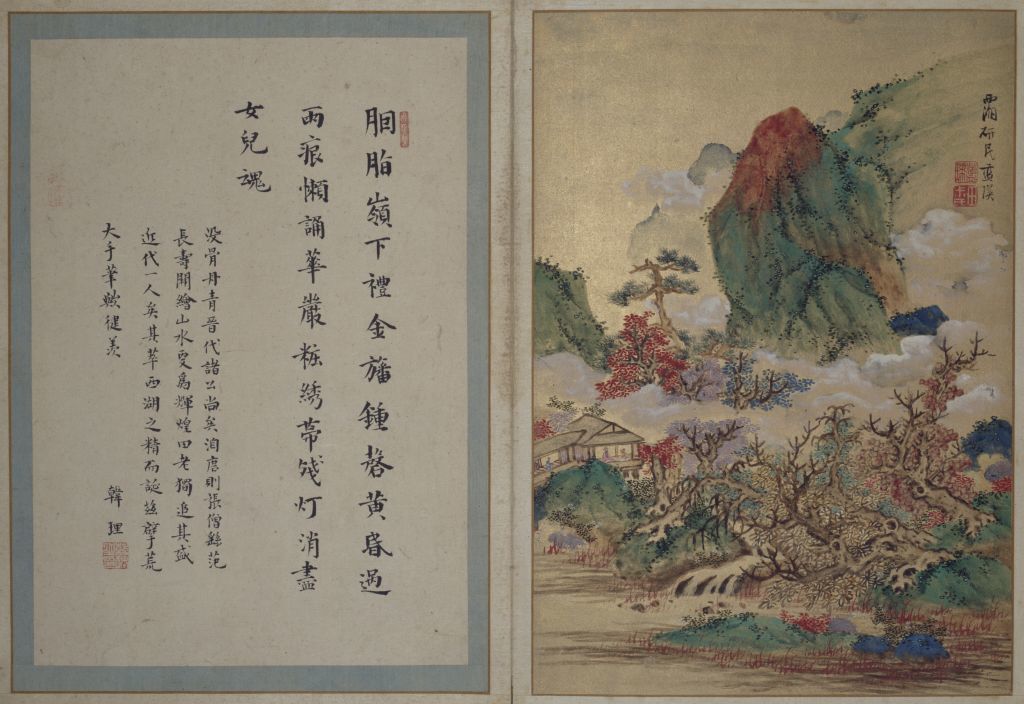 西湖研民藍瑛
胭脂嶺下禮金旛鍾磬黃昏過
雨痕懶誦華嚴粧綉帶殘灯消盡
女兒魂
没骨丹青晉代諸公尚矣洎唐則張僧繇范
長壽開繪山水更為輝煌田老獨追其盛
近代一人矣其萃西湖之精而誕茲擘荒
大手筆歟健羨
韓理